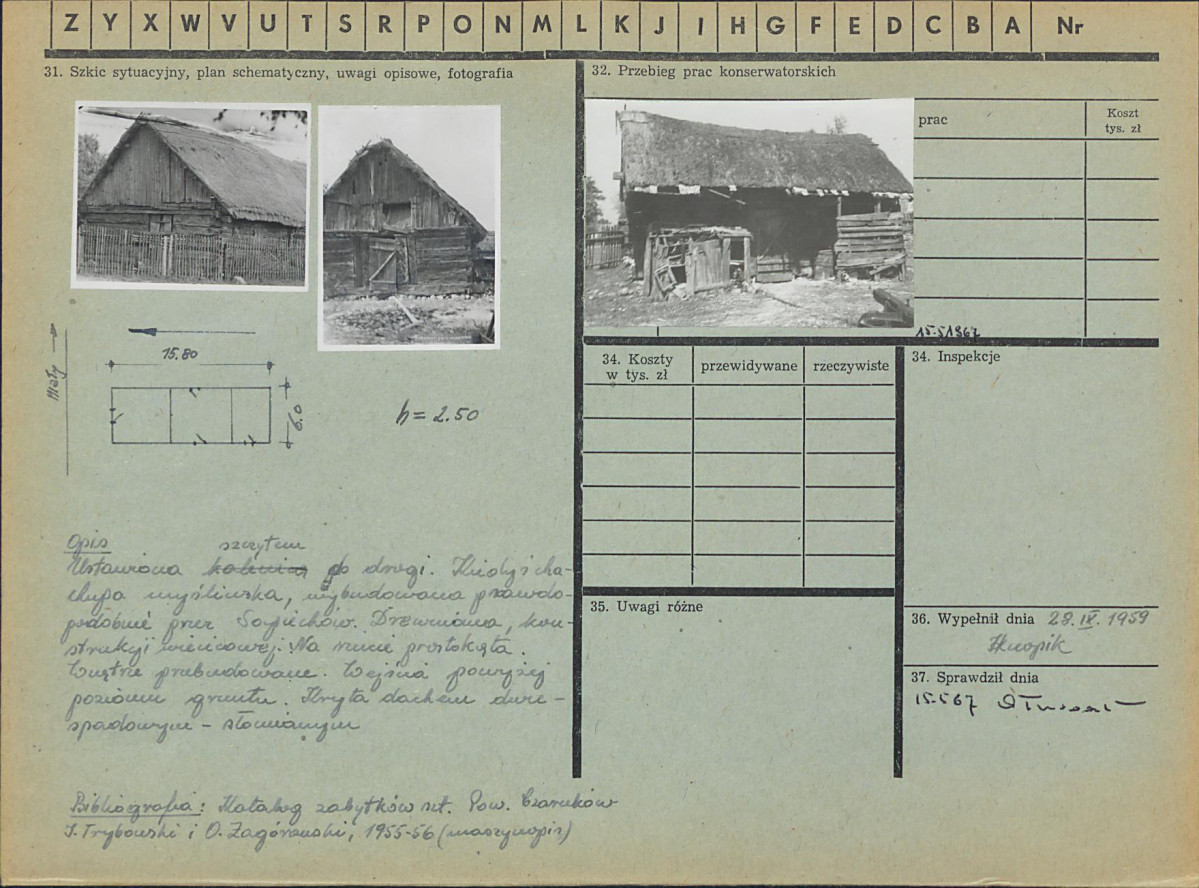 Z Y X W V U T S R P O N M L K J I H G F E D C B A Nr
31. Szkic sytuacyjny, plan schematyczny, uwagi opisowe, fotografia
15.80
6.0
h = 2.50
Opis
szczytem
Ustawiona do drogi. Kiedyś cha-
łupa myśliwska, wybudowana prawdo-
podobnie przez Drewniana, kon-
strukcji wieńcowej. Na rzucie prostokąta.
Wnętrze przebudowane. Wejścia powyżej
poziomu gruntu. Kryta dachem dwu-
spadowym - słomianym
Bibliografia: Katalog zabytków szt. Pow. Czarnków
J. Trybowski i O. Zagórowski, 1955-56 (maszynopis)
32. Przebieg prac konserwatorskich
prac
Koszt
tys. zł
34. Koszty
w tys. zł
przewidywane
rzeczywiste
34. Inspekcje
35. Uwagi różne
36. Wypełnił dnia 28.IX.1959
37. Sprawdził dnia
15.5.67